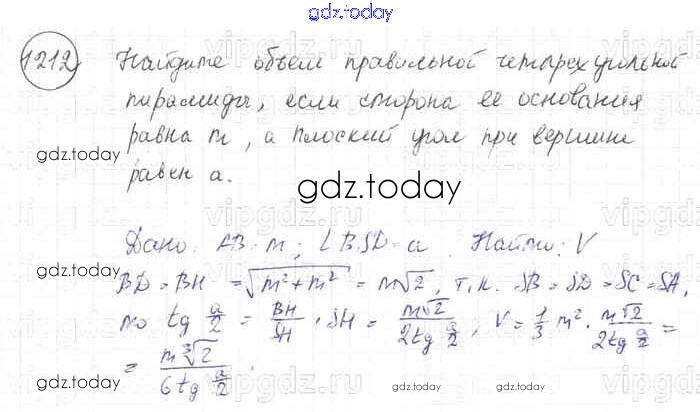 gdz.today
1212 Найдите объем правильной четырехугольной
пирамиды, если сторона ее основания
равна m, а плоский угол при вершине
равен a.
gdz.today
gdz.today
Дано: AB = m; ∠BSD = a. Найти: V
BD = BH = √(m² + m²) = m√2, т.к. SB = SD = SC = SA,
то tg a/2 = BH/SH, SH = m√2/(2tg a/2); V = 1/3 m² · m√2/(2tg a/2) =
= m³√2/(6tg a/2).
gdz.today
gdz.today
gdz.today